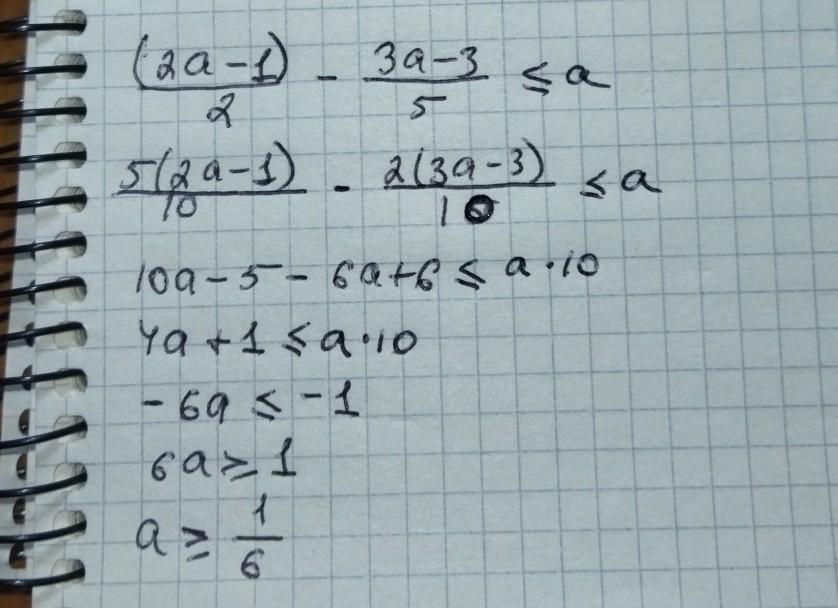 (2a-1)/2 - (3a-3)/5 ≤ a
5(2a-1)/10 - 2(3a-3)/10 ≤ a
10a-5-6a+6 ≤ a·10
4a+1 ≤ a·10
-6a ≤ -1
6a ≥ 1
a ≥ 1/6